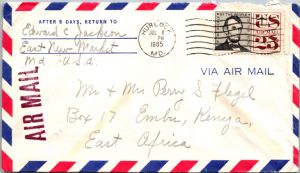 AFTER 5 DAYS, RETURN TO
Edward C Jackson
East New Market
Md U.S.A.
HURLOCK
JUL
PM
1965
MD.
US
AIR MAIL
25
VIA AIR MAIL
AIR MAIL
Mr & Mrs Perry S Flegel
Box 17 Embu, Kenya,
East Africa